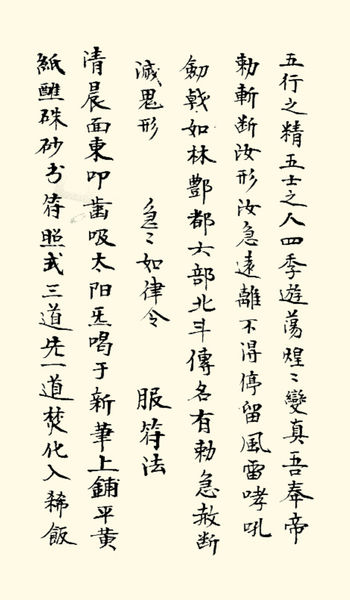 五行之精五士之人四季遊蕩煌〻變真吾奉帝
勅斬断汝形汝急遠離不淂停留風雷哮吼
劒戟如林酆都六部北斗傳名有勅急赦断
滅鬼形 急〻如律令 服符法
清晨面東叩齒吸太阳炁喝于新筆上鋪平黄
紙醮硃砂书符照式三道先一道焚化入稀飯